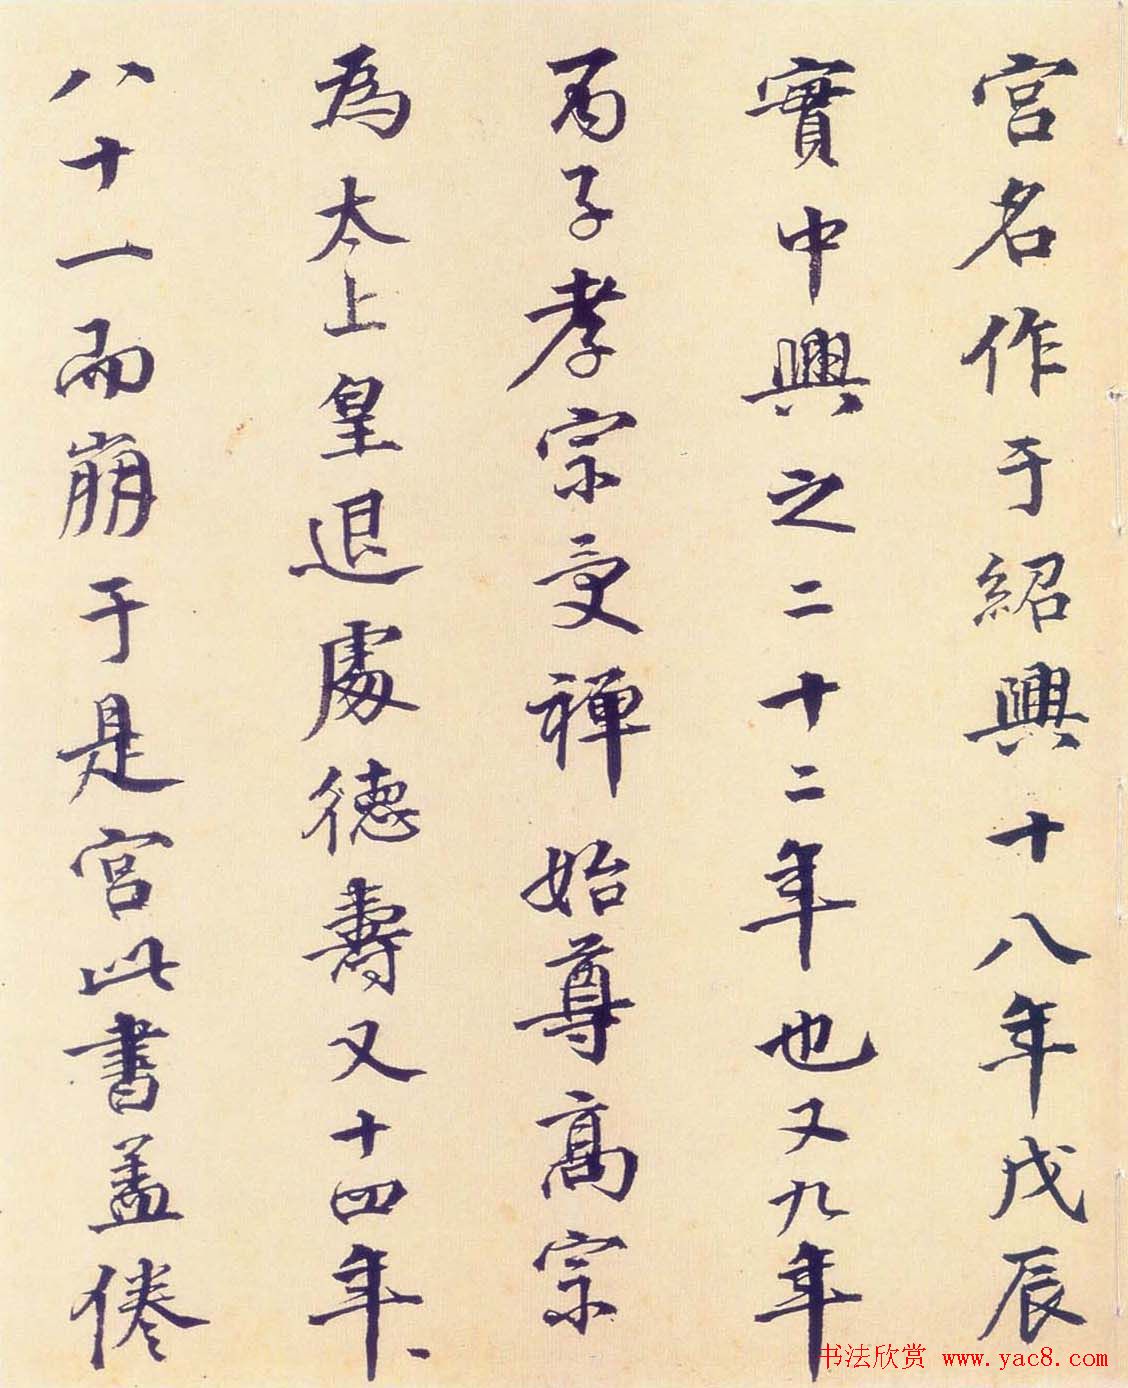 宮名作于紹興十八年戊辰
實中興之二十二年也又九年
丙子孝宗受禪始尊高宗
為太上皇退處德壽又十四年
八十一而崩于是宮此書蓋倦
书法欣赏 www.yac8.com